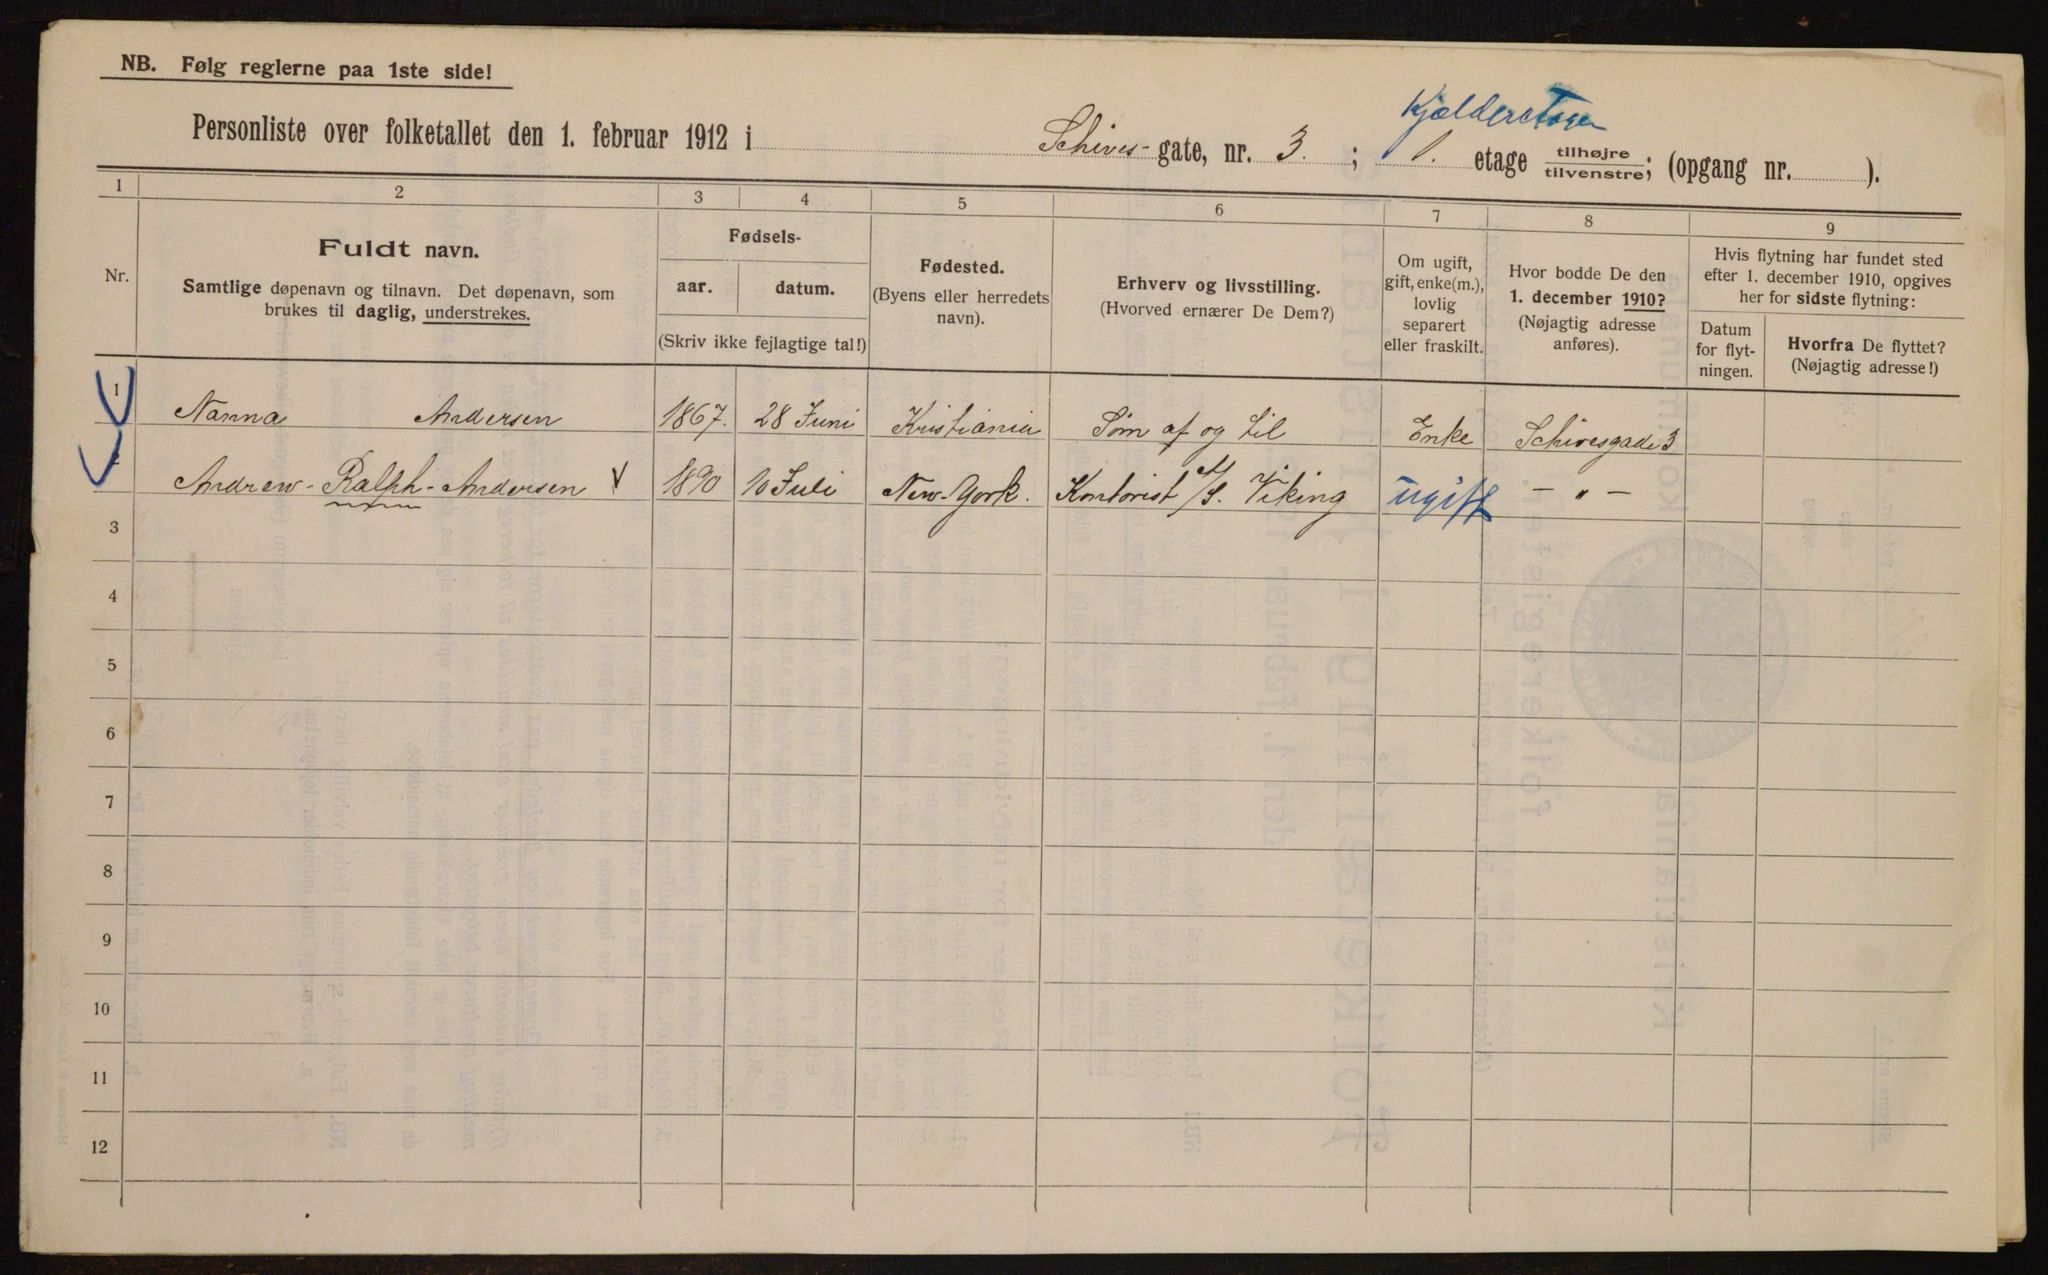 NB. Følg reglerne paa 1ste side!
Kjælderetagen
Personliste over folketallet den 1. februar 1912 i Schives- gate, nr. 3. ; 1. etage tilhøjre/tilvenstre; (opgang nr. ).
1 2 3 4 5 6 7 8 9
Nr.
Fuldt navn.
Samtlige døpenavn og tilnavn. Det døpenavn, som
brukes til daglig, understrekes.
Fødsels-
aar. datum.
(Skriv ikke fejlagtige tal!)
Fødested.
(Byens eller herredets
navn).
Erhverv og livsstilling.
(Hvorved ernærer De Dem?)
Om ugift,
gift, enke(m.),
lovlig
separert
eller fraskilt.
Hvor bodde De den
1. december 1910?
(Nøjagtig adresse
anføres).
Hvis flytning har fundet sted
efter 1. december 1910, opgives
her for sidste flytning:
Datum
for flyt-
ningen.
Hvorfra De flyttet?
(Nøjagtig adresse!)
1 Nanna Andersen 1867. 28 Juni Kristiania Søm af og til Enke Schivesgade 3
2 Andrew-Ralph-Andersen V 1890 10 Juli New-York. Kontorist A/S. Viking ugift — „ —
3
4
5
6
7
8
9
10
11
12